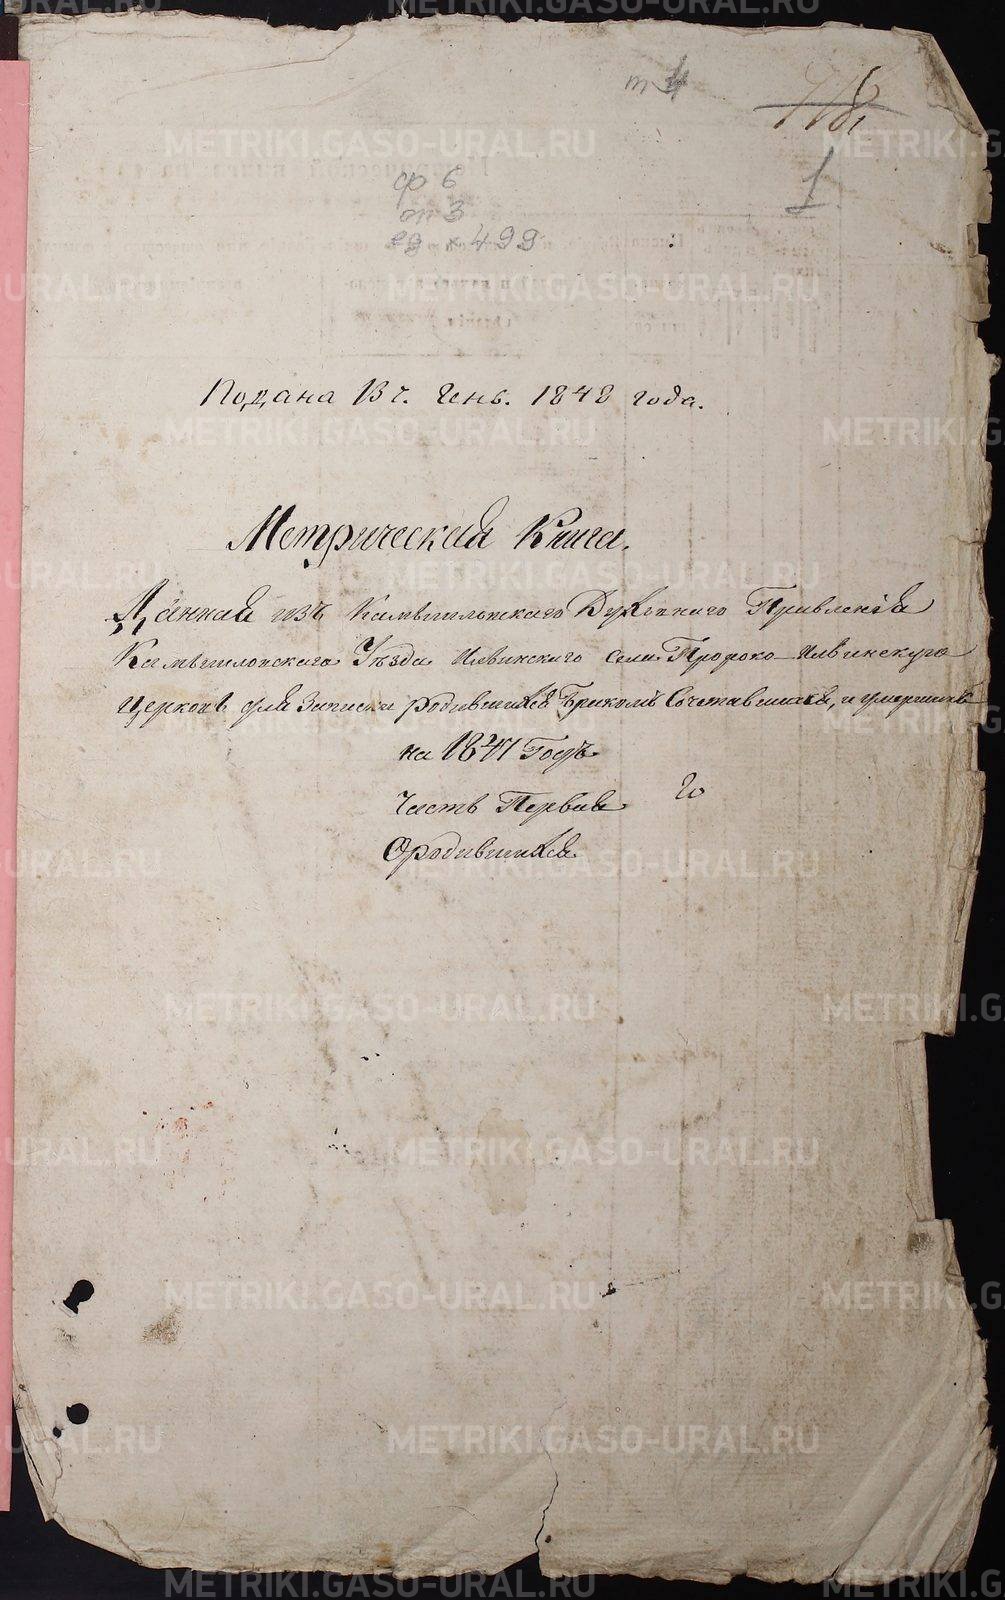 т 4
1
ф 6
оп 3
ед х 499
Подана 13 ч. Генв. 1848 года.
Метрическая Книга.
Данная изъ Камышловскаго Духовнаго Правленія
Камышловскаго Уѣзда Ильинскаго села Пророко-Ильинскую
церковь для записки родившихся бракомъ Сочетавшихся, и умершихъ
на 1847 Годъ
Часть Первая
О родившихся
METRIKI.GASO-URAL.RU